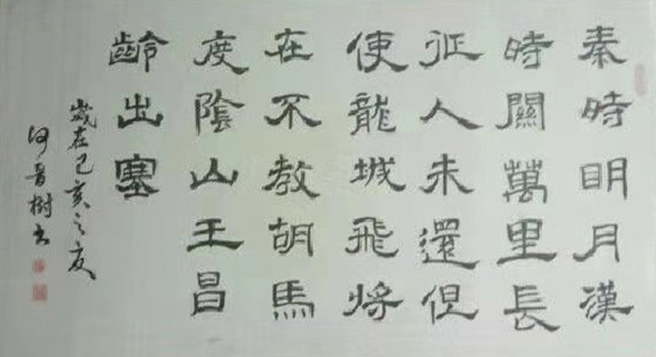 秦時明月漢
時關萬里長
征人未還但
使龍城飛將
在不教胡馬
度陰山王昌
齡出塞
歲在己亥之夏
何晋樹书